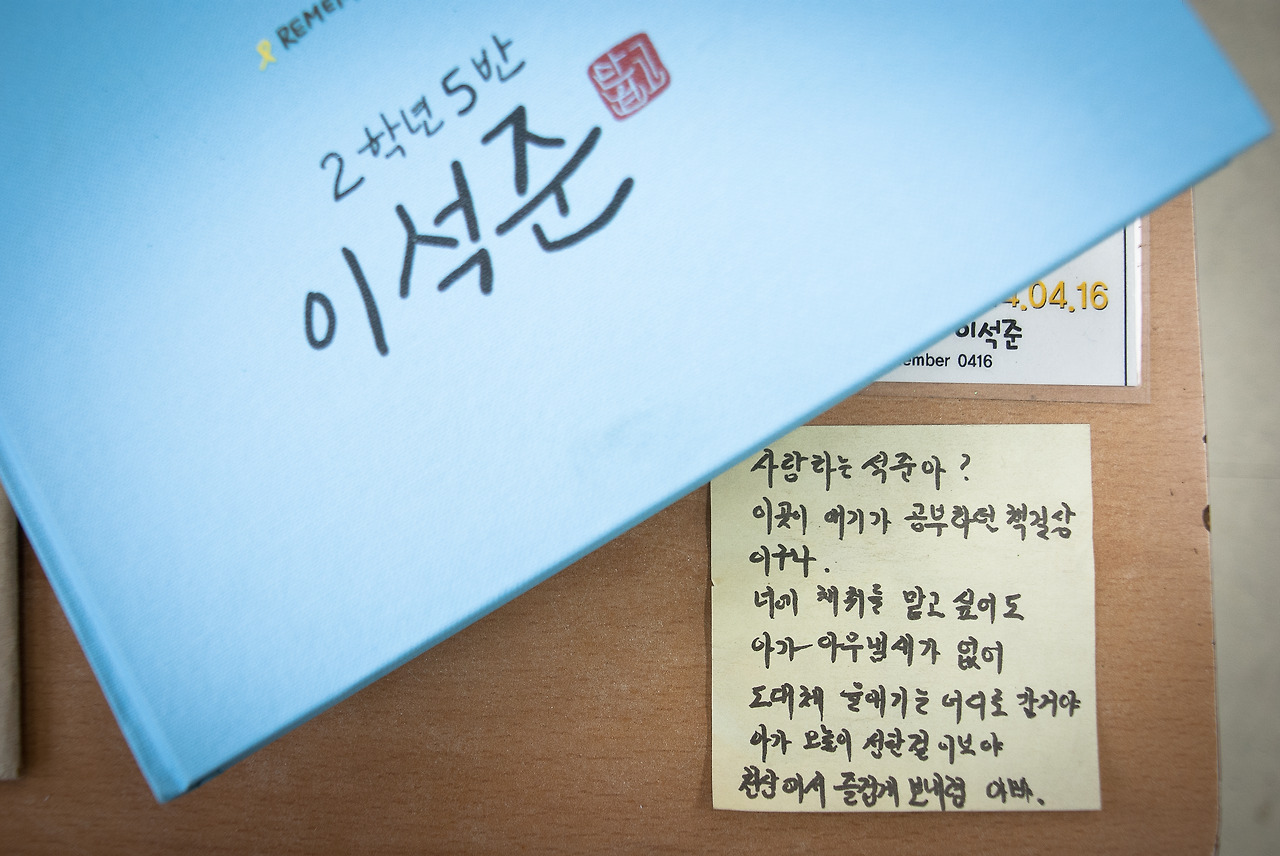 REMEM
2학년 5반
이석준
4.04.16
이석준
ember 0416
사랑하는 석준아?
이곳이 애기가 공부하던 책걸상
이구나.
너에 채취를 맡고 싶어도
아가 아무냄새가 없어
도대체 울애기는 어디로 간거야
아가 오늘이 선한걸 이보야
천상에서 즐겁게 보내렴 아빠.